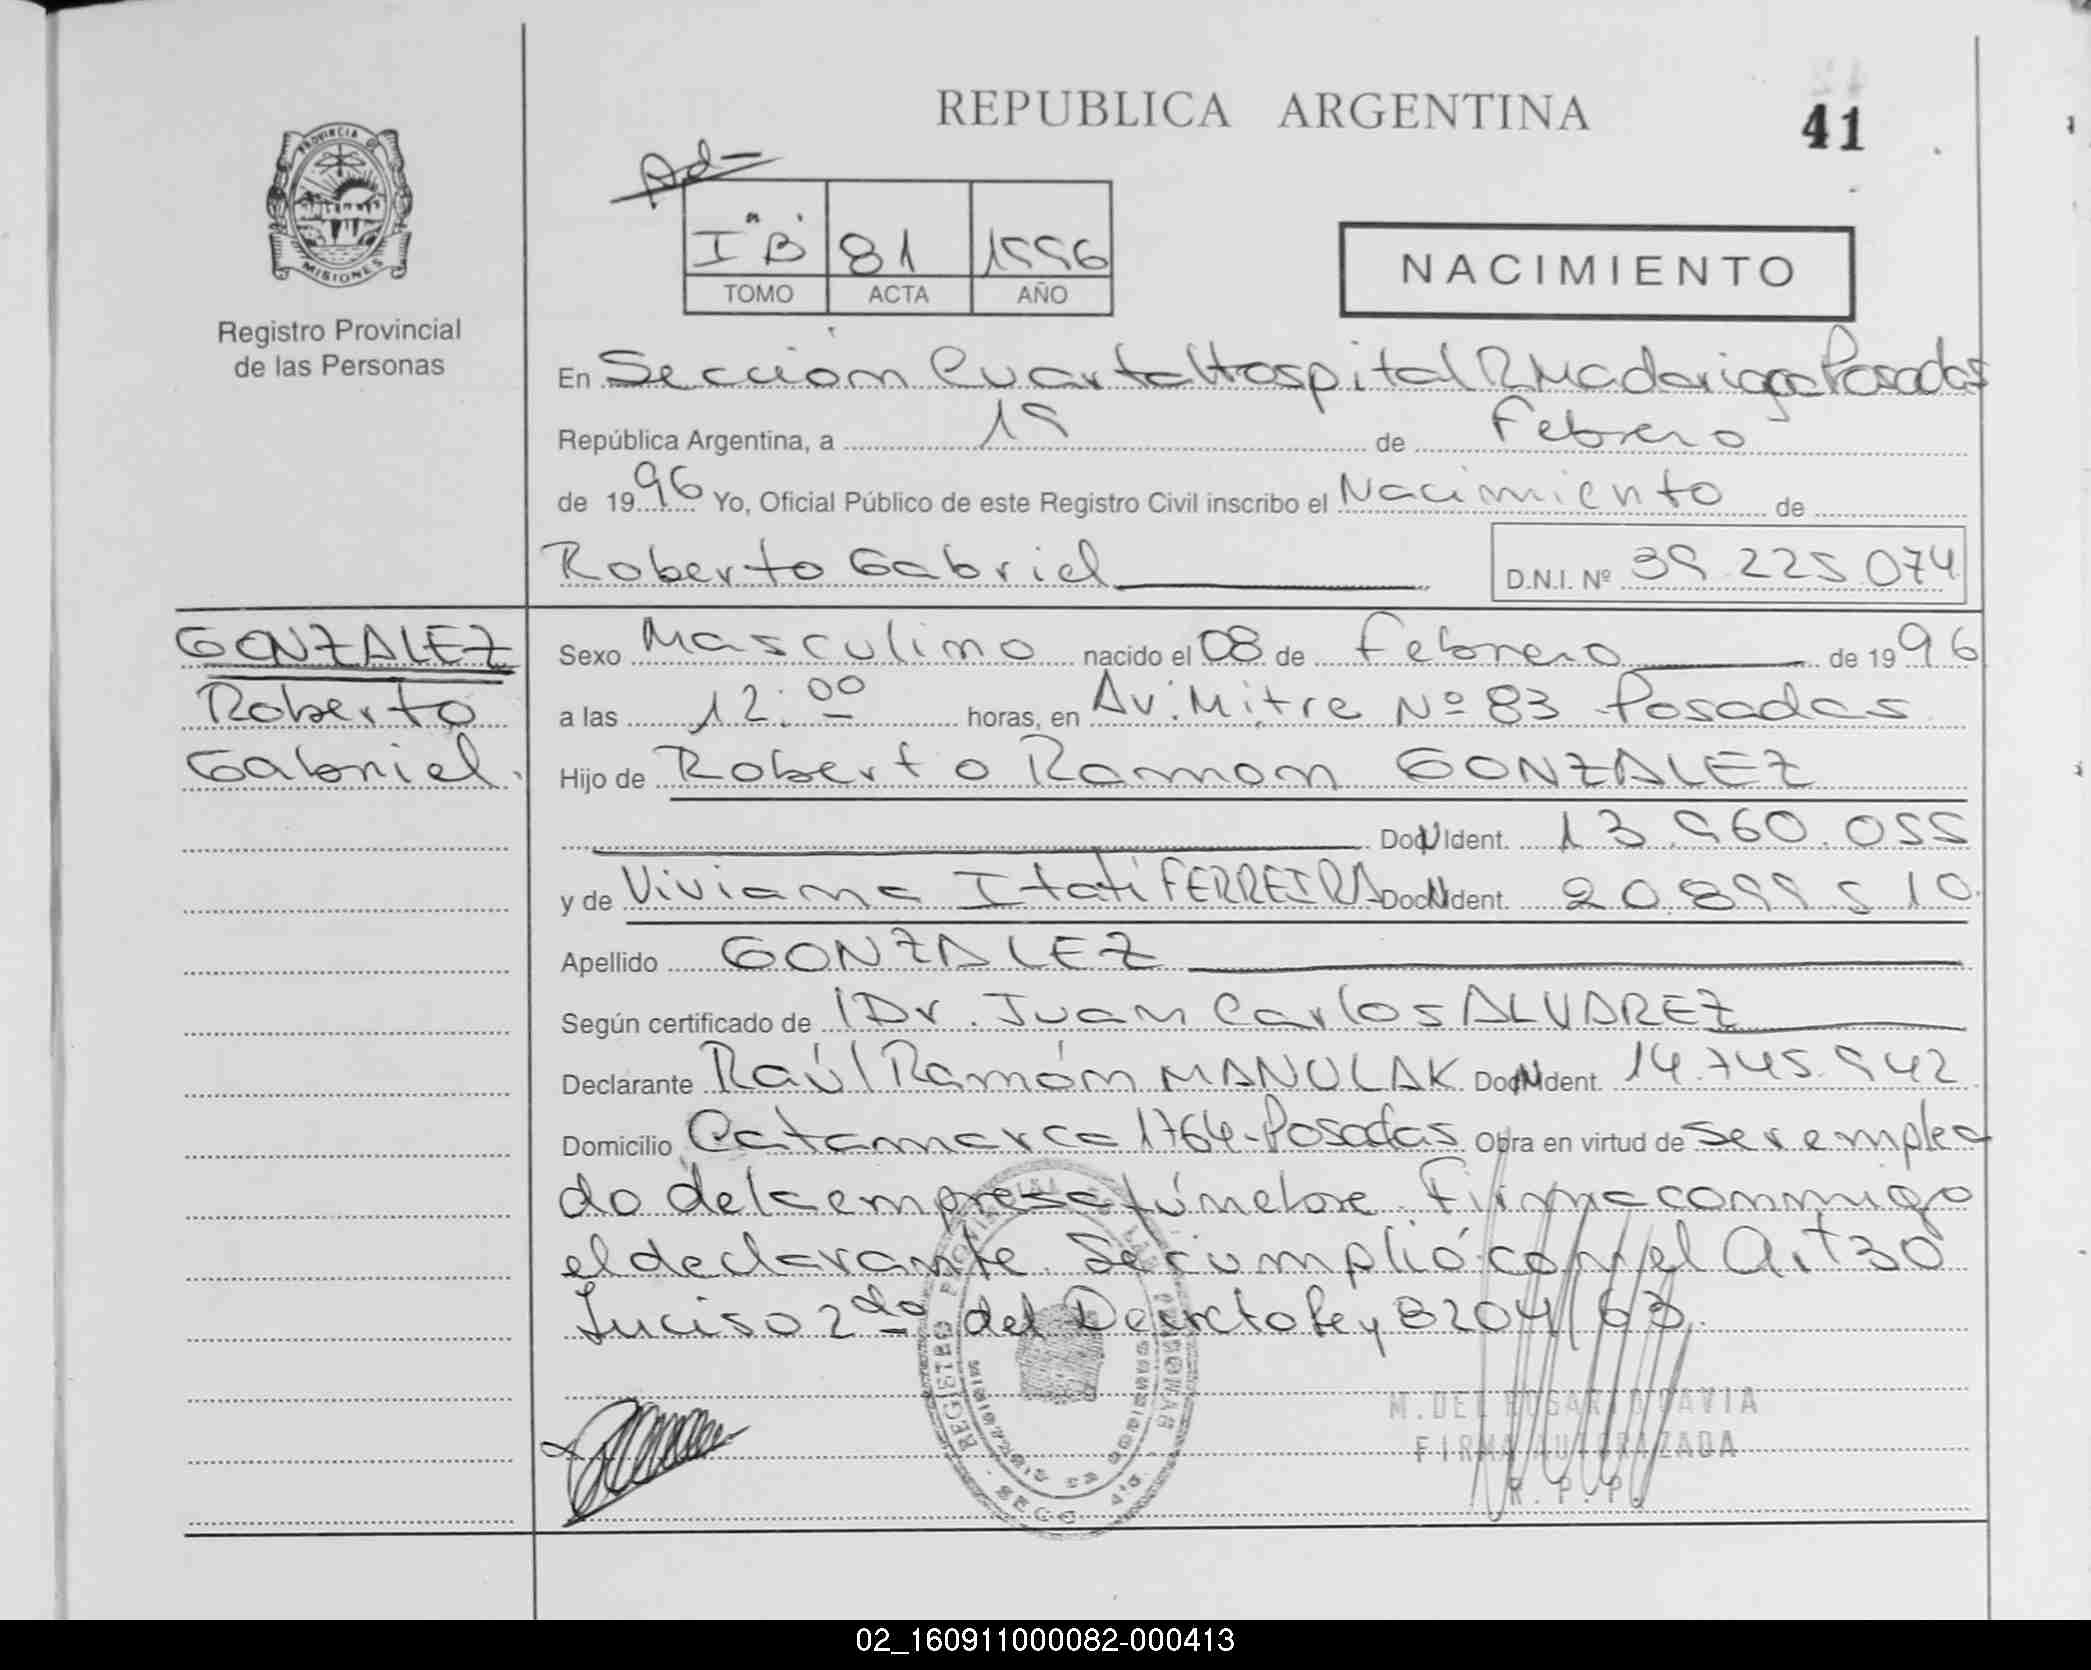 REPUBLICA ARGENTINA
41
PROVINCIA DE
MISIONES
Registro Provincial
de las Personas
Ad-
I "B" 81 1996
TOMO ACTA AÑO
NACIMIENTO
En Sección Cuarta Hospital R Madariaga Posadas
República Argentina, a 19 de Febrero
de 1996 Yo, Oficial Público de este Registro Civil inscribo el Nacimiento de
Roberto Gabriel D.N.I. Nº 39.225.074
GONZALEZ
Roberto
Gabriel.
Sexo Masculino nacido el 08 de febrero de 1996
a las 12:00 horas, en Av. Mitre Nº 83 Posadas
Hijo de Roberto Ramon GONZALEZ
Doc N Ident. 13.960.055
y de Viviana Itatí FERREIRA Doc N Ident. 20.899.510
Apellido GONZALEZ
Según certificado de Dr. Juan Carlos ALVAREZ
Declarante Raúl Ramón MANULAK Doc N Ident. 14.745.942
Domicilio Catamarca 1764-Posadas Obra en virtud de ser emplea
do de la empresa fúnebre. Firma conmigo
el declarante. Se cumplió con el Art 30
Inciso 2do del Decreto Ley 8204/63.
REGISTRO PROVINCIAL DE LAS PERSONAS
M. DEL ROSARIO DAVIA
FIRMA AUTORIZADA
R. P. P.
02_160911000082-000413